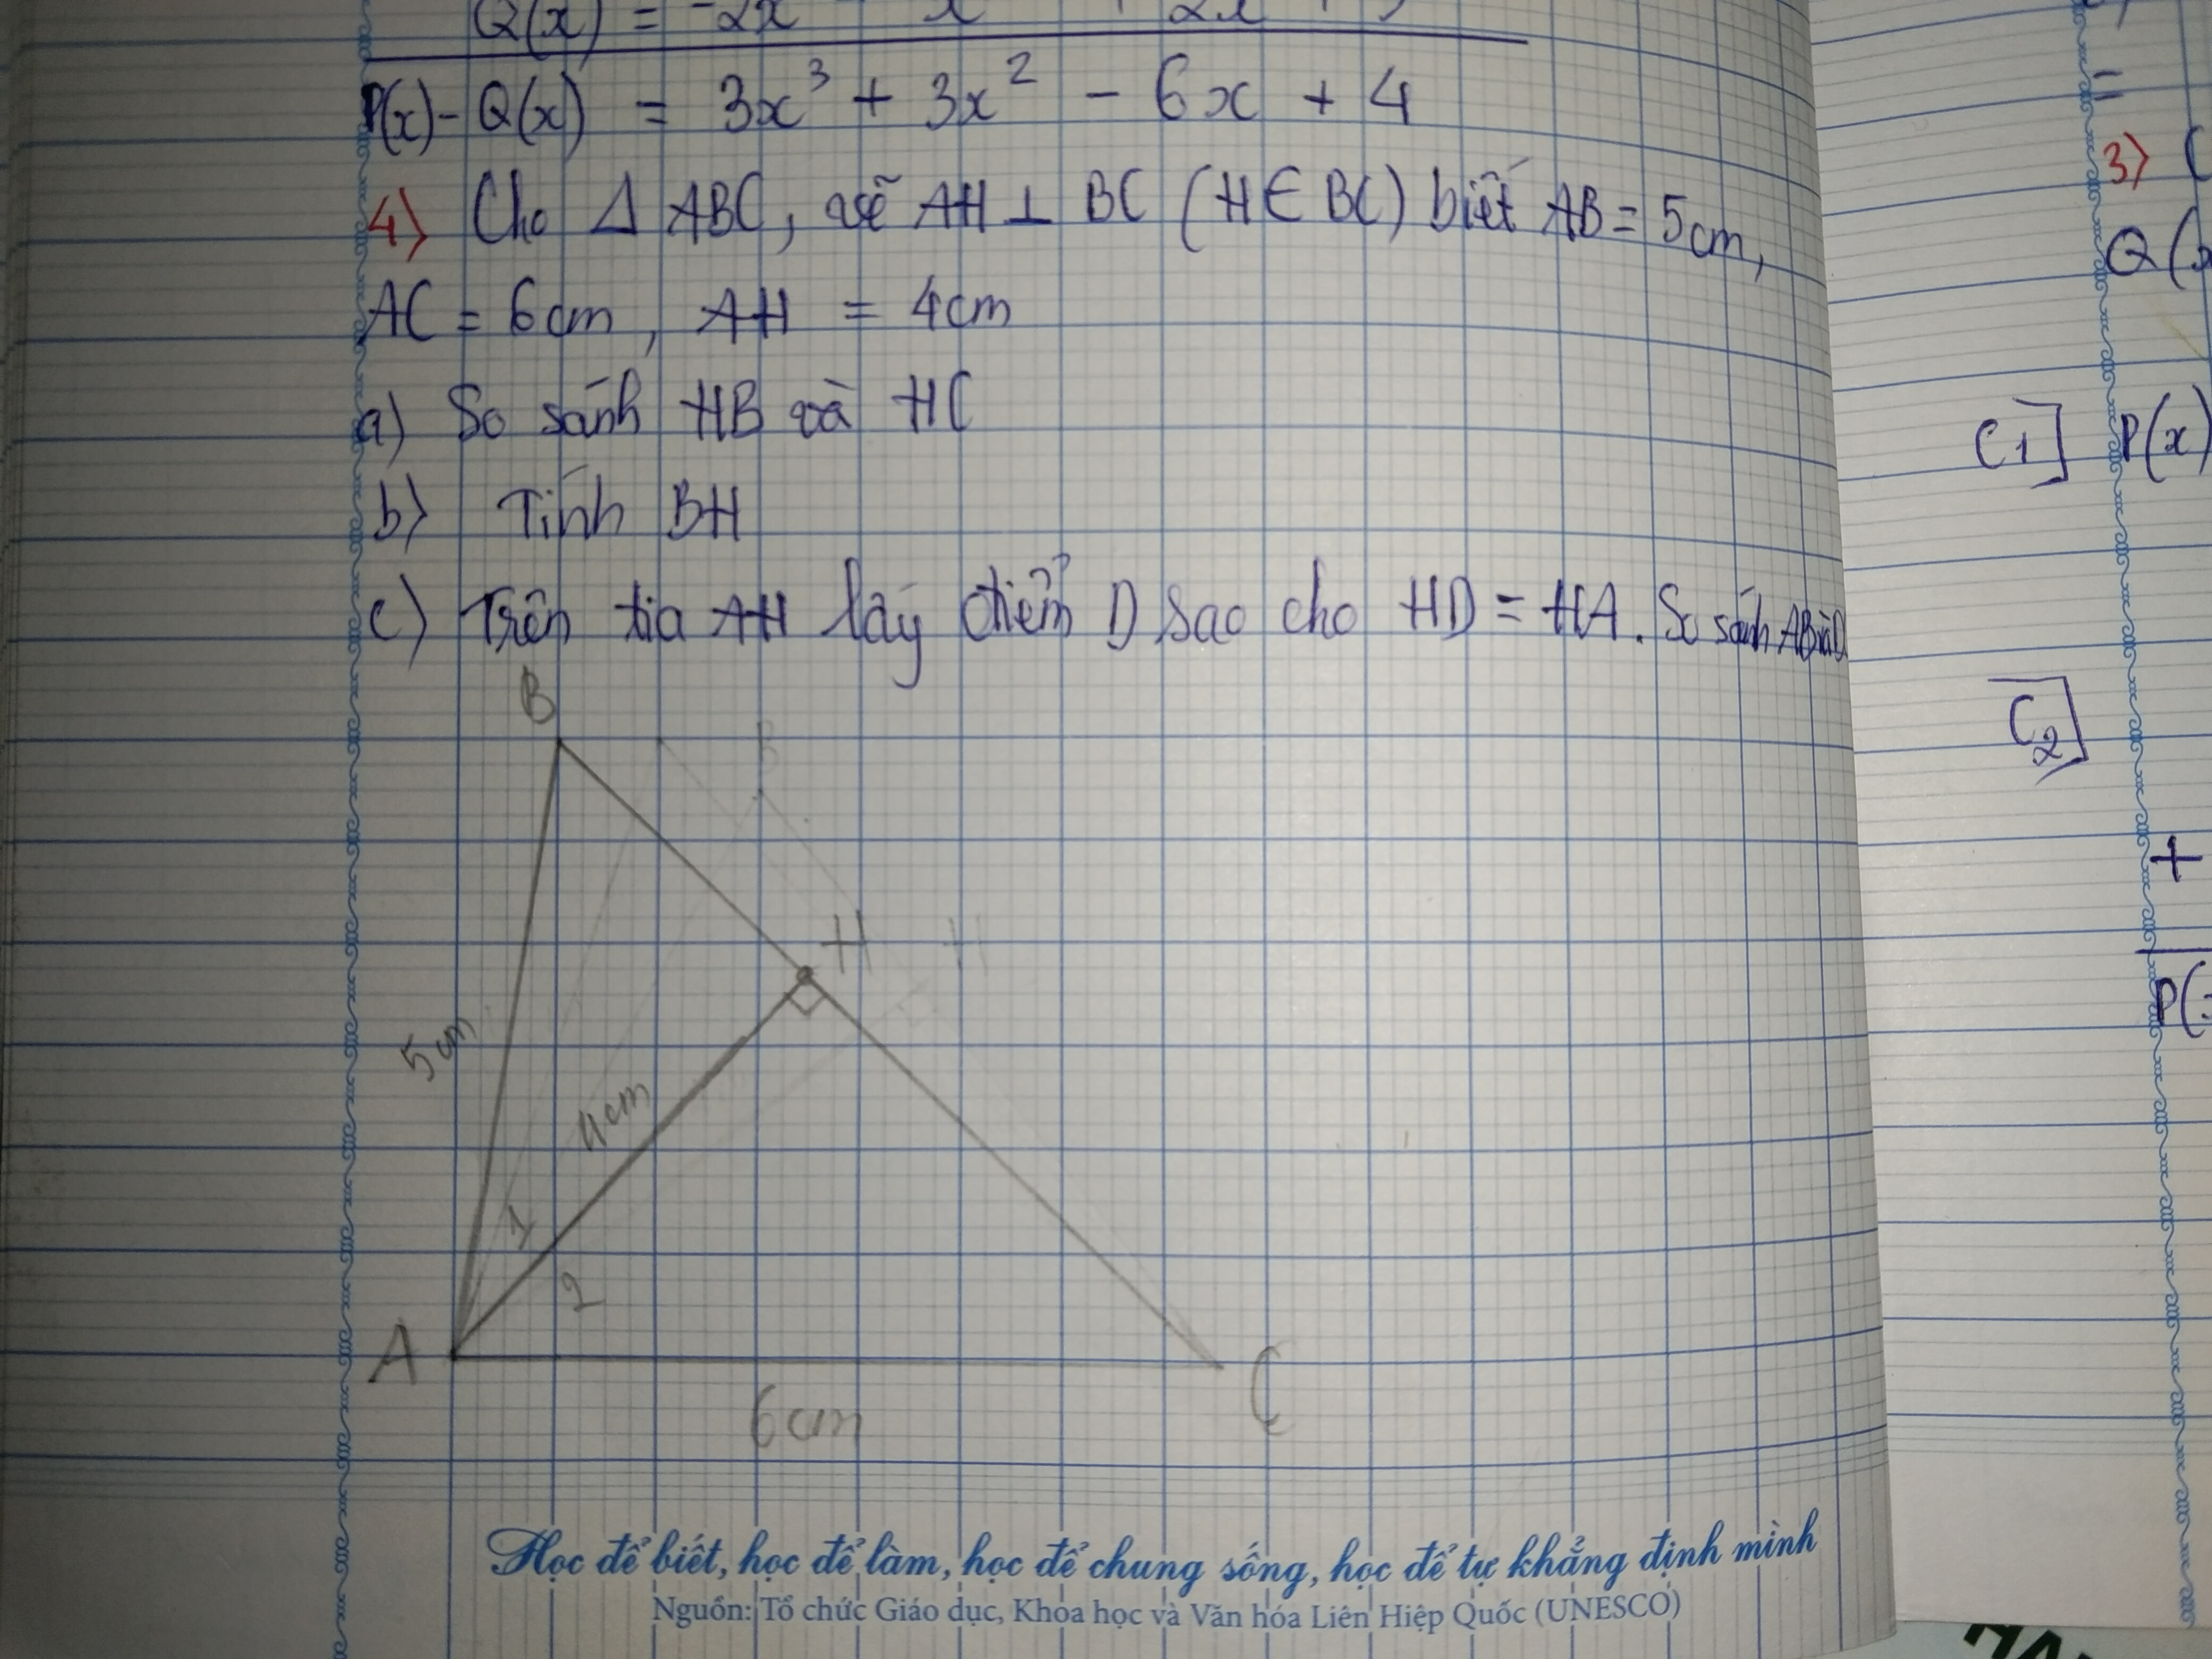 Q(x) = -2x
P(x) - Q(x) = 3x³ + 3x² - 6x + 4
4) Cho Δ ABC, vẽ AH ⊥ BC (H ∈ BC) biết AB = 5cm,
AC = 6cm, AH = 4cm
a) So sánh HB và HC
b) Tính BH
c) Trên tia AH lấy điểm D sao cho HD = HA. So sánh AB và
B
B
H
H
5cm
4cm
1
2
A
C
6cm
Học để biết, học để làm, học để chung sống, học để tự khẳng định mình
Nguồn: Tổ chức Giáo dục, Khoa học và Văn hóa Liên Hiệp Quốc (UNESCO)
=
3)
Q(
C1] P(x)
C2]
+
P(